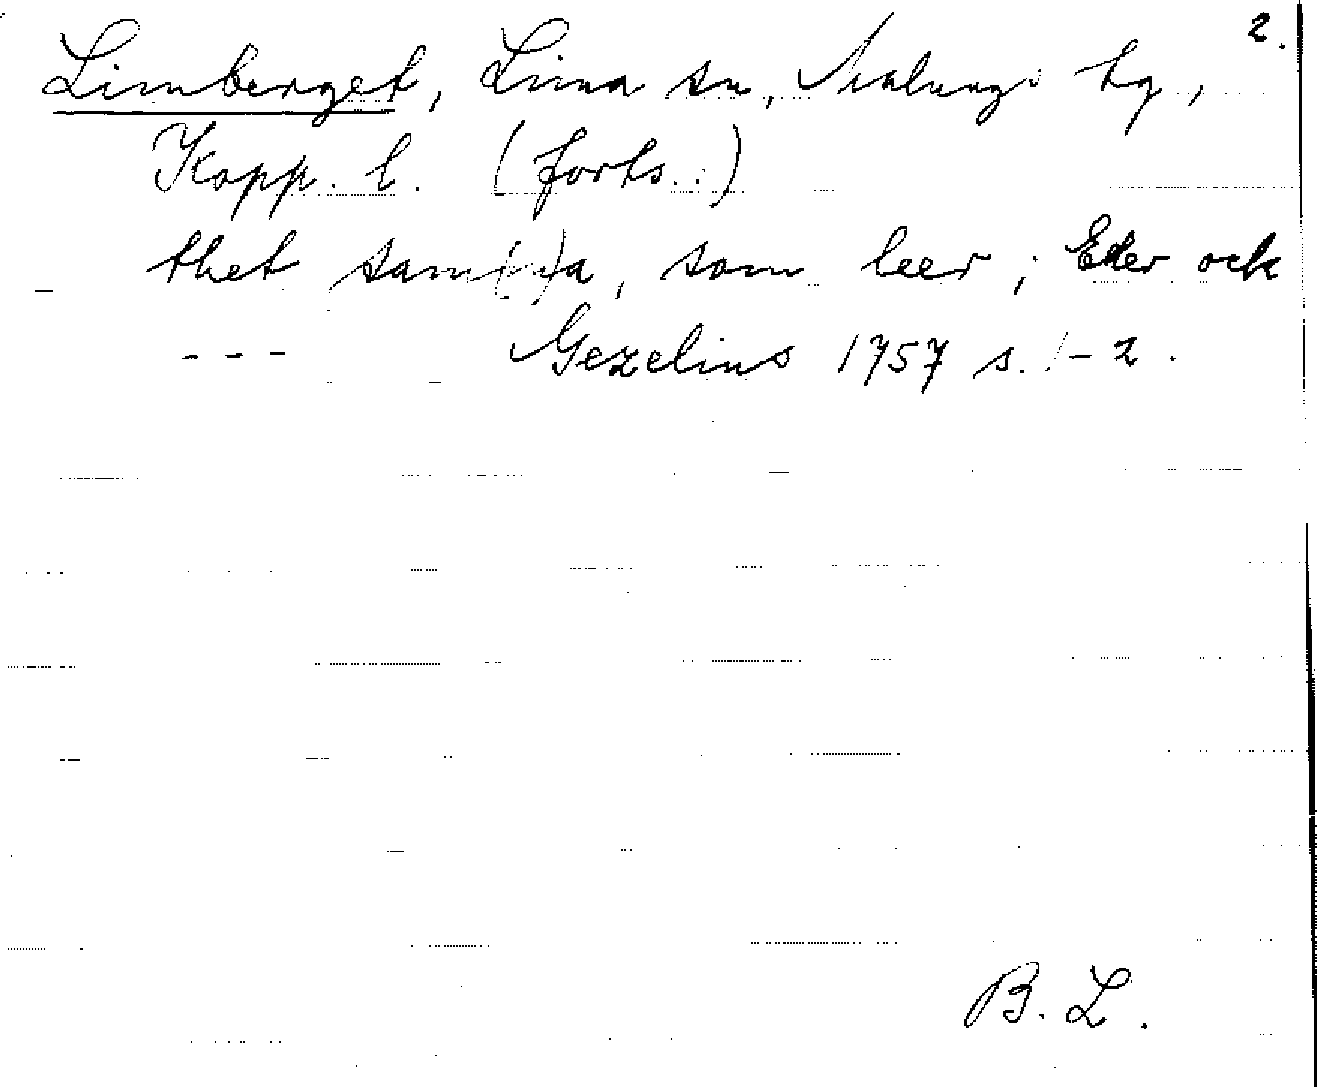 2.
Limberget, Lima sn, Malungs tg,
Kopp. l. (forts.)
thet sam(m)a, som leer; Eder ock
- - - Gezelius 1757 s. 1-2.
B. L.